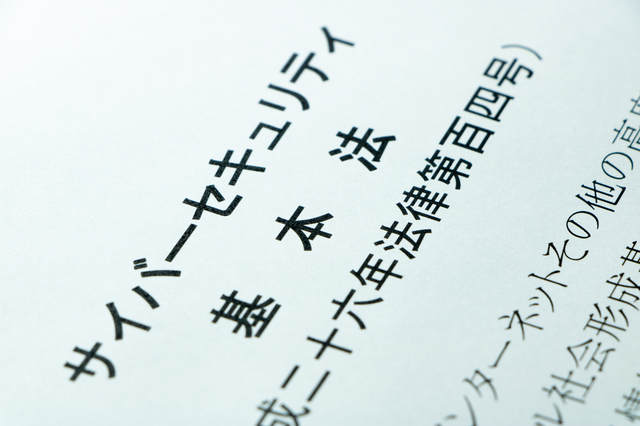 サイバーセキュリティ
基本法
成二十六年法律第百四号）
ンターネットその他の高
社会形成基